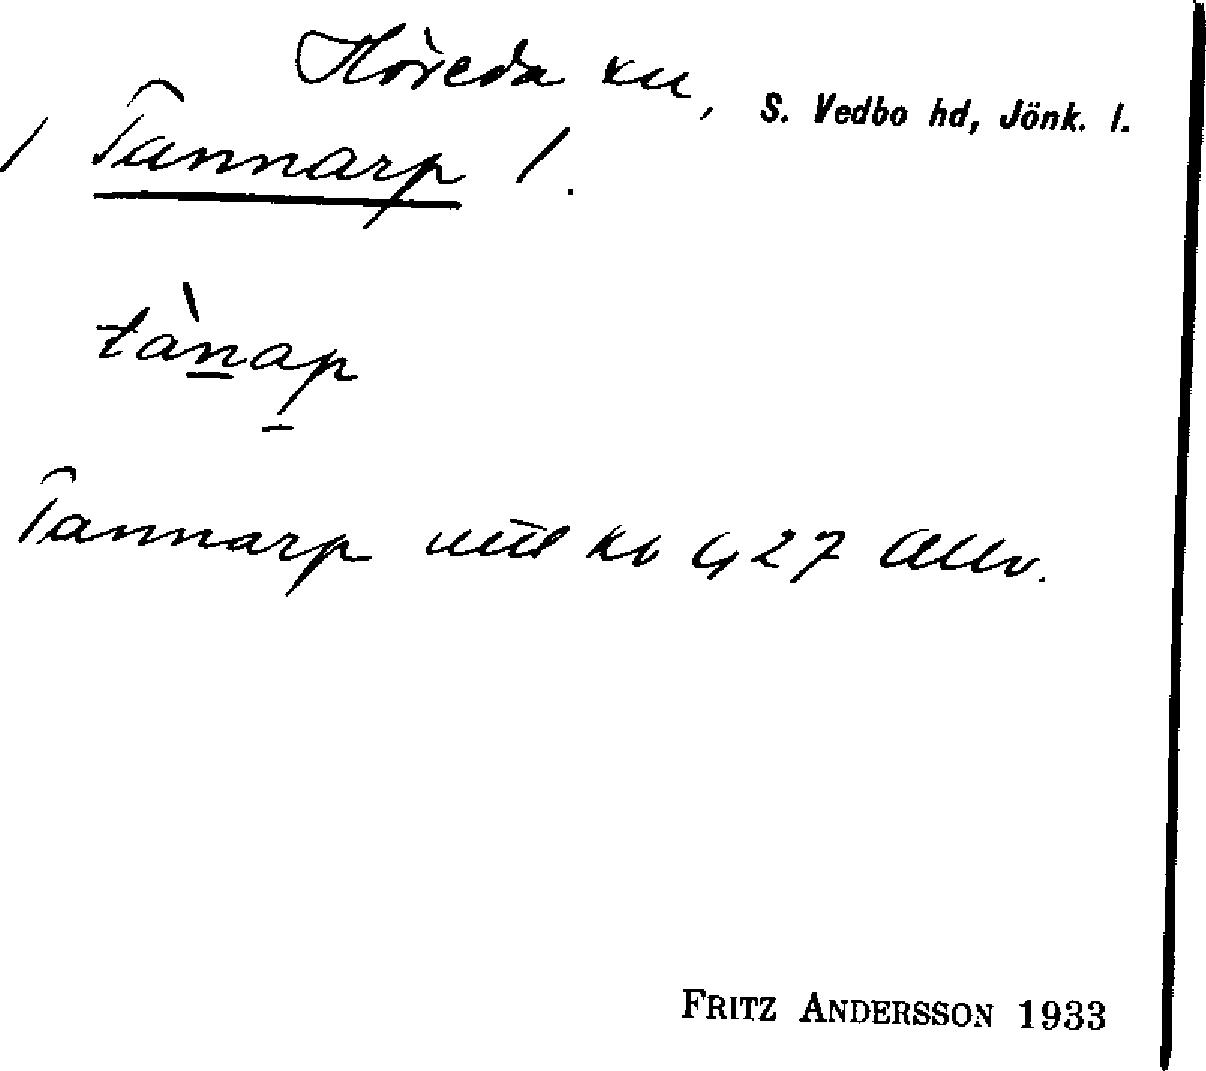 Höreda sn, S. Vedbo hd, Jönk. l.
/ Tannarp /.
tànap
Tannarp
27
FRITZ ANDERSSON 1933